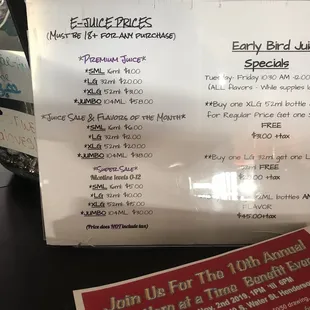 E-JUICE PRICES
(MUST BE 18+ FOR ANY PURCHASE)
*PREMIUM JUICE*
*SML 16ml
*LG 32ml
*XLG 52ml
*JUMBO 104ML $58.00
*JUICE SALE & FLAVORS OF THE MONTH*
*SML 16ml $6.00
*LG 32ml $12.00
*XLG 52ml $20.00
*JUMBO 104ml $38.00
*SUPER SALE*
Nicotine levels 0-12
*SML 16ml $5.00
*LG 32ml $10.00
*XLG 52ml
*JUMBO 104ML $30.00
(Price does NOT include tax)
Early Bird
Specials
Tuesday- Friday 10:30 AM -12:00
(ALL Flavors - While supplies
**Buy one XLG 52ml bottle
for Regular Price Get one
FREE
+tax
**Buy one LG 32ml get one
FREE
+tax
bottles
FLAVOR
$45.00+tax
Join Us For The 10th Annual
Hero at a Time Benefit Event
Nov. 2nd 2019, 1PM 'til 6PM
S. Water St. Henderson
drawing